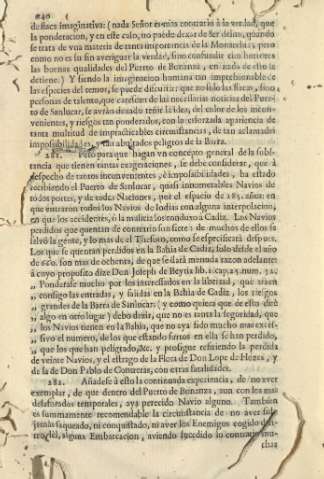 240
desface imaginativa: (nada Señor es mas contrario à la verdad, que
la ponderacion, y en este caso, no puede dexar de ser delito, quando
se trata de vna materia de tanta importancia de la Monarchia; pero
como no es su fin averiguar la verdad, sino confundir con horrores
las buenas qualidades del Puerto de Bonanza, en nada de esto se
detiene) Y siendo la imaginacion humana tan impressionable de
las especies del temor, se puede discurrir que no solo las fisicas, sino
personas de talento, que carescan de las necessarias noticias del Puer-
to de Sanlucar, se avràn dexado teñir la idea, del color de los incon-
venientes, y riesgos tan ponderados, con la esforzada apariencia de
tanta multitud de impracticables circunstancias, de tan aclamados
impossibilidades, y tan abultados peligros de la Barra.
281. Pero para que hagan vn concepto general de la subs-
tancia que tienen tantas exageraciones, se debe considerar, que à
despecho de tantos inconvenientes, è impossibilidades, ha estado
recibiendo el Puerto de Sanlucar, quasi innumerables Navios de
todos portes, y de todas Naciones, por el espacio de 285. años: en
que entraron todos los Navios de Indias con alguna interpolacion,
en que los accidentes, ò la malicia los conduxo à Cadiz. Los Navios
perdidos que quentan de contrario son siete: de muchos de ellos se
salvò la gente, y lo mas de el Thesoro, como se especificarà despues.
Los que se quentan perdidos en la Bahia de Cadiz, solo desde el año
de 660. son mas de ochenta, de que se darà menuda razon adelante:
à cuyo proposito dize Don Joseph de Beytia lib. 2. cap. 25. num. 32.
„ Ponderase mucho por los interessados en la libertad, que traen
„ consigo las entradas, y salidas en la Bahia de Cadiz, los riesgos
„ grandes de la Barra de Sanlucar: (y como quiera que de esto dirè
„ algo en otro lugar) debo dezir, que no es tanta la seguridad, que
„ los Navios tienen en la Bahia, que no aya sido mucho mas exces-
„ sivo el numero, de los que estando surtos en ella se han perdido,
„ que los que han peligrado, &c. y prosigue refiriendo la perdida
de veinte Navios, y el estrago de la Flota de Don Lope de Hozes, y
de la de Don Pablo de Contreras, con otras fatalidades.
282. Añadese à esto la continuada experiencia, de no aver
exemplar, de que dentro del Puerto de Bonanza, aun con los mas
desaforados temporales, aya perecido Navio alguno. Tambien
es summamente recomendable la circunstancia de no aver sido
jamàs saqueado, ni conquistado, ni aver los Enemigos cogido den-
tro del, alguna Embarcacion, aviendo sucedido lo contrario mu-
chas